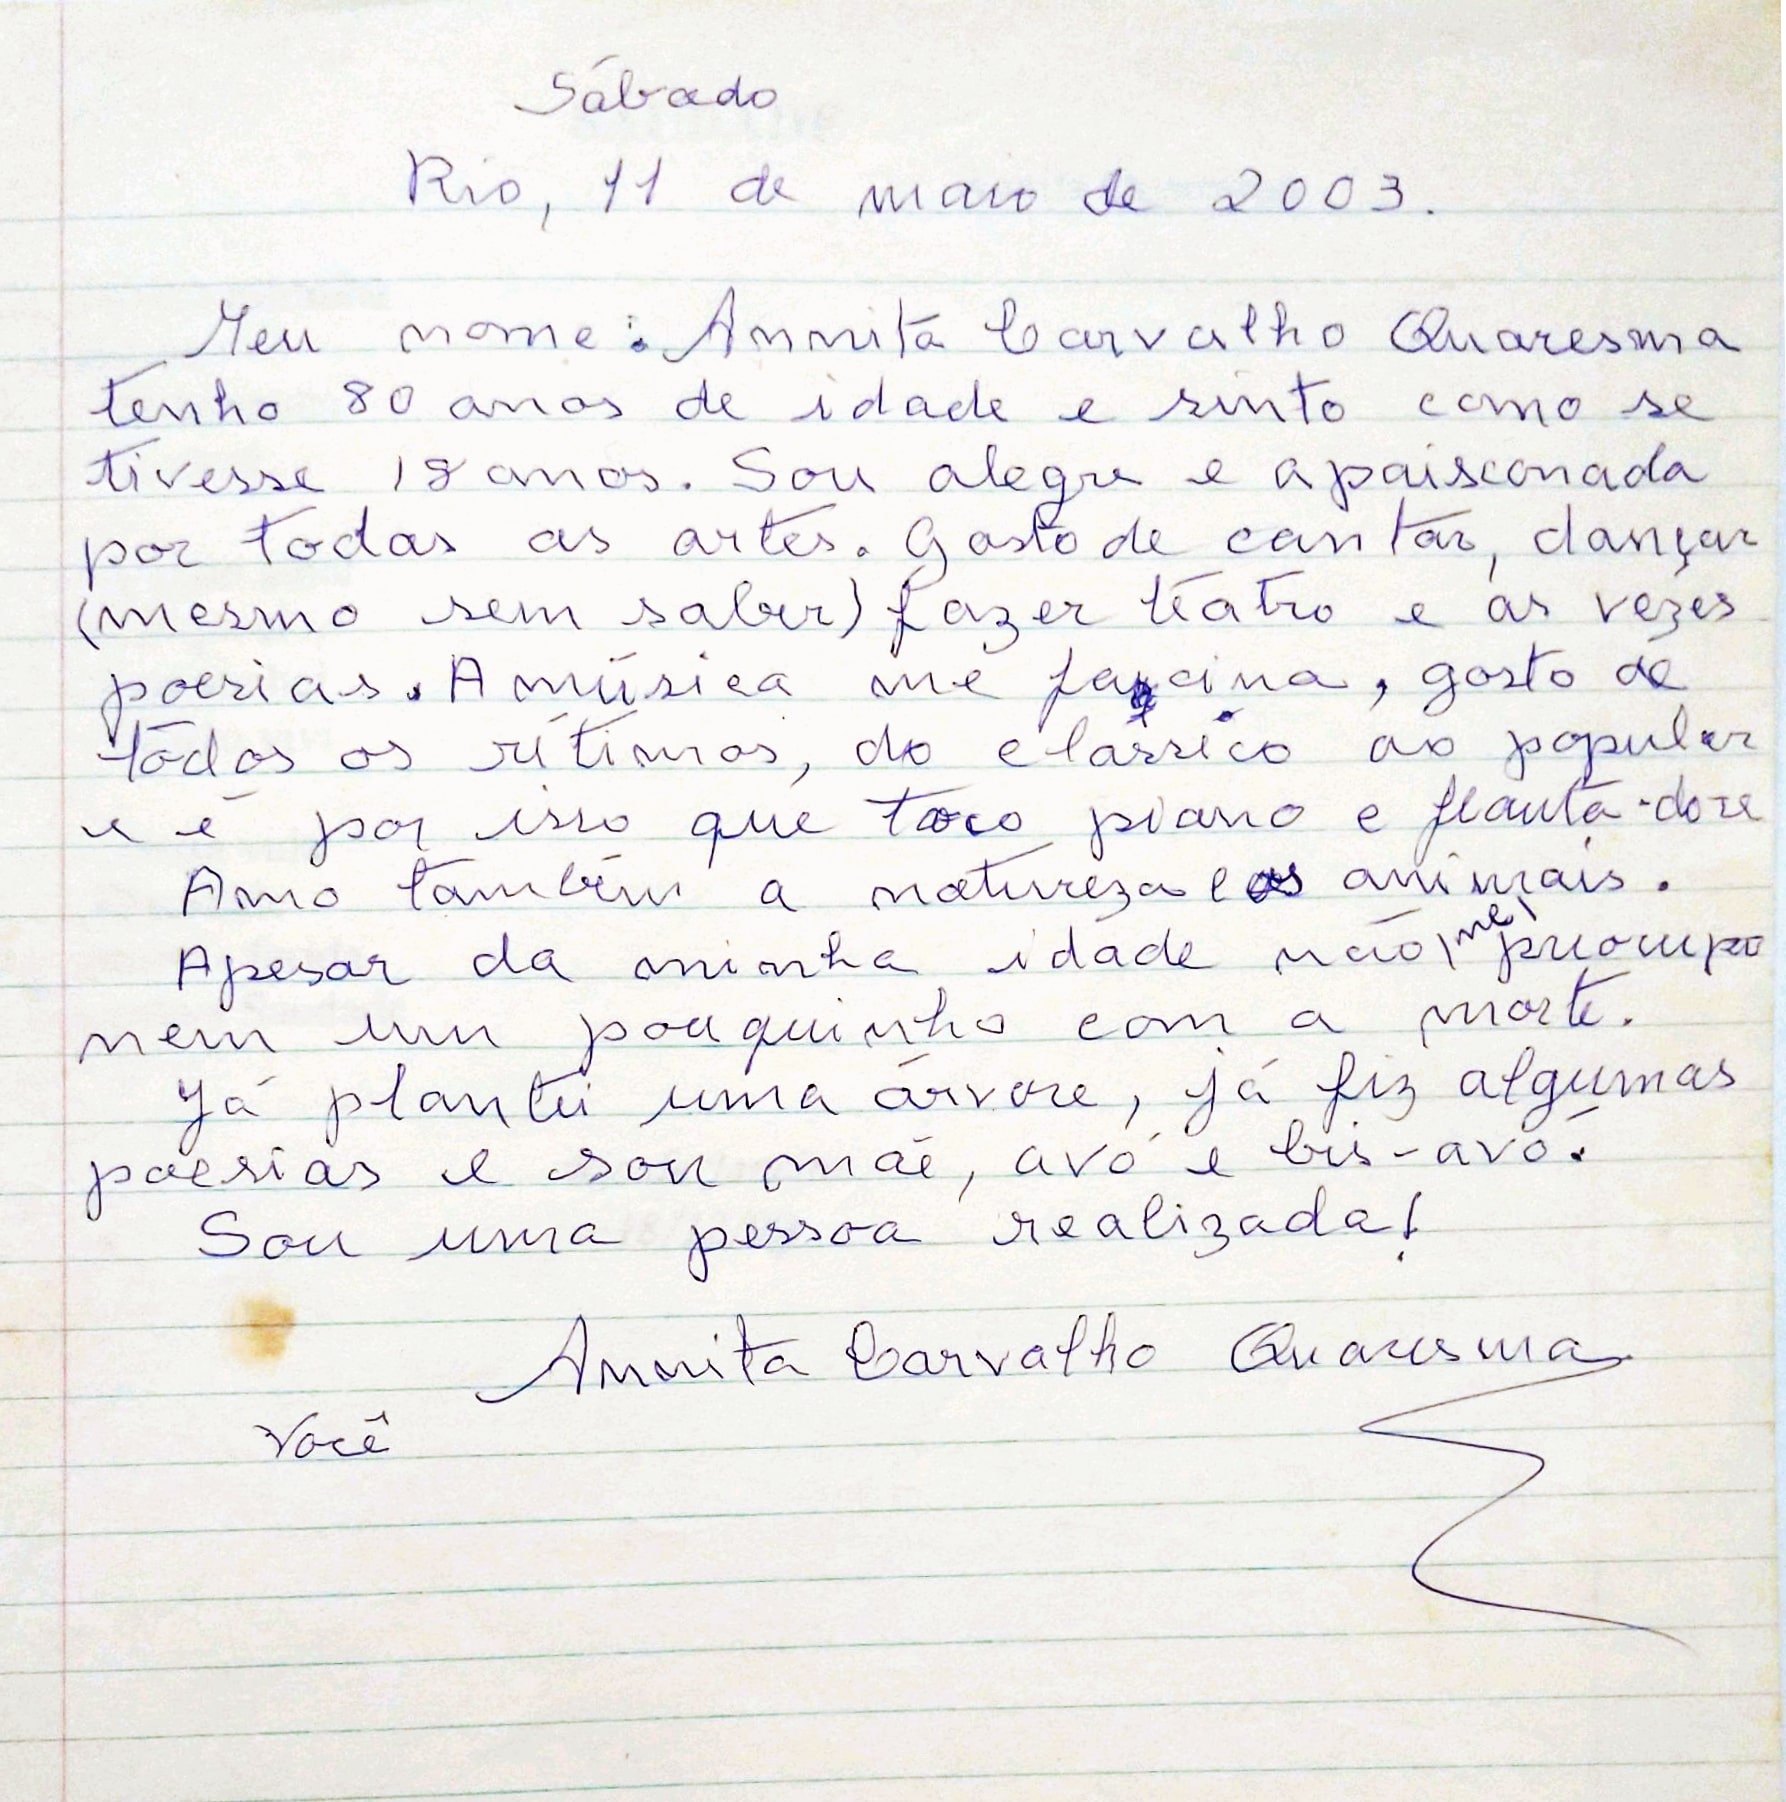 Sábado
Rio, 11 de maio de 2003.
Meu nome: Annita Carvalho Quaresma
tenho 80 anos de idade e sinto como se
tivesse 18 anos. Sou alegre e apaisconada
por todas as artes. Gosto de cantar, dançar
(mesmo sem saber) fazer teatro e às vezes
poesias. A música me fascina, gosto de
todos os rítimos, do clássico ao popular
e é por isso que toco piano e flauta-doce
Amo também a natureza e os animais.
Apesar da minha idade não me preocupo
nem um pouquinho com a morte.
Já plantei uma árvore, já fiz algumas
poesias e sou mãe, avó e bis-avó.
Sou uma pessoa realizada!
Annita Carvalho Quaresma
Você